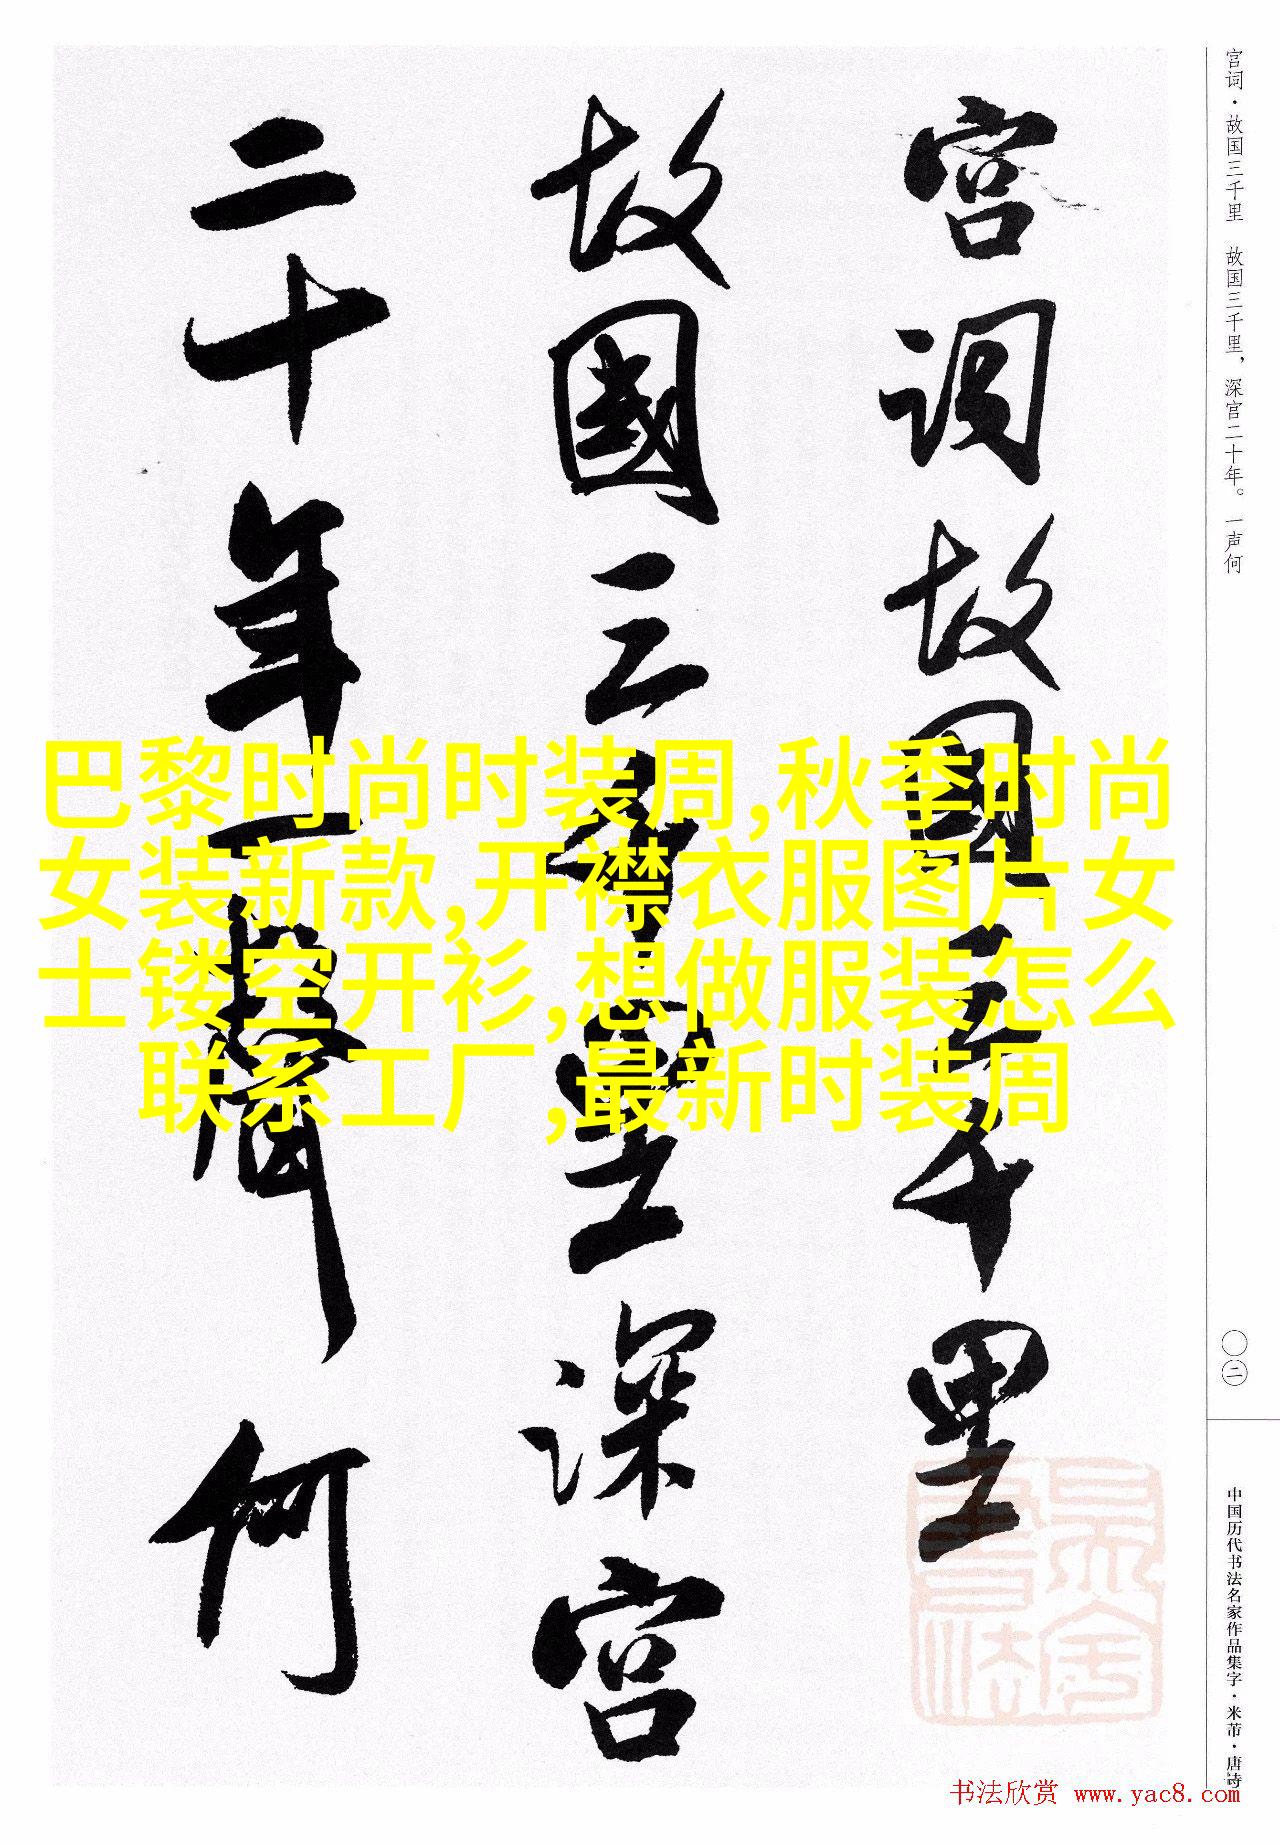 宫词故国三千里
故國三千里深宫
二十年一聲何
巴黎时尚时装周,秋季时尚
女装新款,开襟衣服图片女
士镂空开衫,想做服装怎么
联系工厂,最新时装周
宫词·故国三千里 故国三千里，深宫二十年。一声何
〇二
中国历代书法名家作品集字·米芾·唐诗
书法欣赏 www.yac8.com